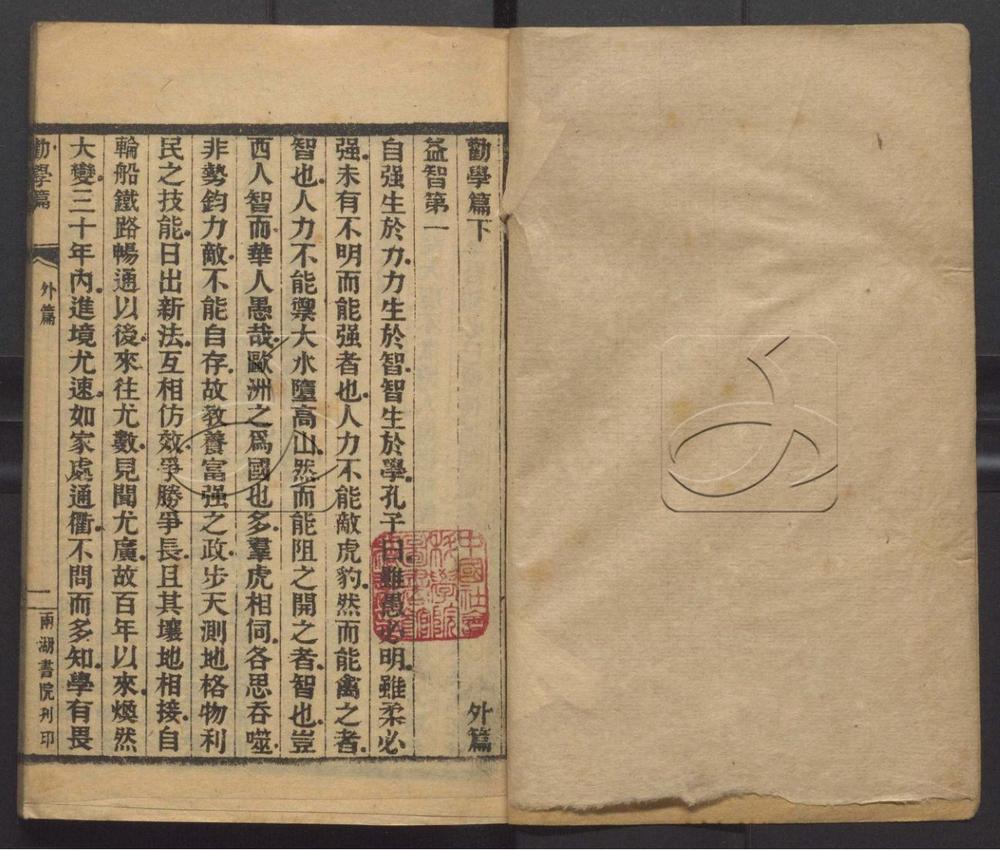 勸學篇下 外篇
益智第一
自强生於力力生於智智生於學孔子曰雖愚必明雖柔必
强未有不明而能强者也人力不能敵虎豹然而能禽之者
智也人力不能禦大水墮高山然而能阻之開之者智也豈
西人智而華人愚哉歐洲之爲國也多羣虎相伺各思吞噬
非勢鈞力敵不能自存故教養富强之政步天測地格物利
民之技能日出新法互相仿效爭勝爭長且其壤地相接自
輪船鐵路暢通以後來往尤數見聞尤廣故百年以來煥然
大變三十年內進境尤速如家處通衢不問而多知學有畏
勸學篇 外篇 一 兩湖書院刊印
中國社會
科學院